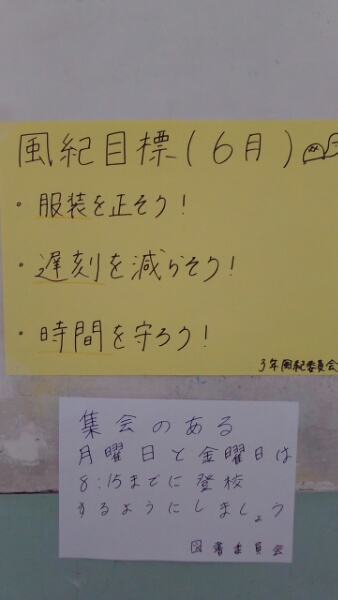 風紀目標(6月)
・服装を正そう!
・遅刻を減らそう!
・時間を守ろう!
3年風紀委員会
集会のある
月曜日と金曜日は
8:15までに登校
するようにしましょう
図書委員会